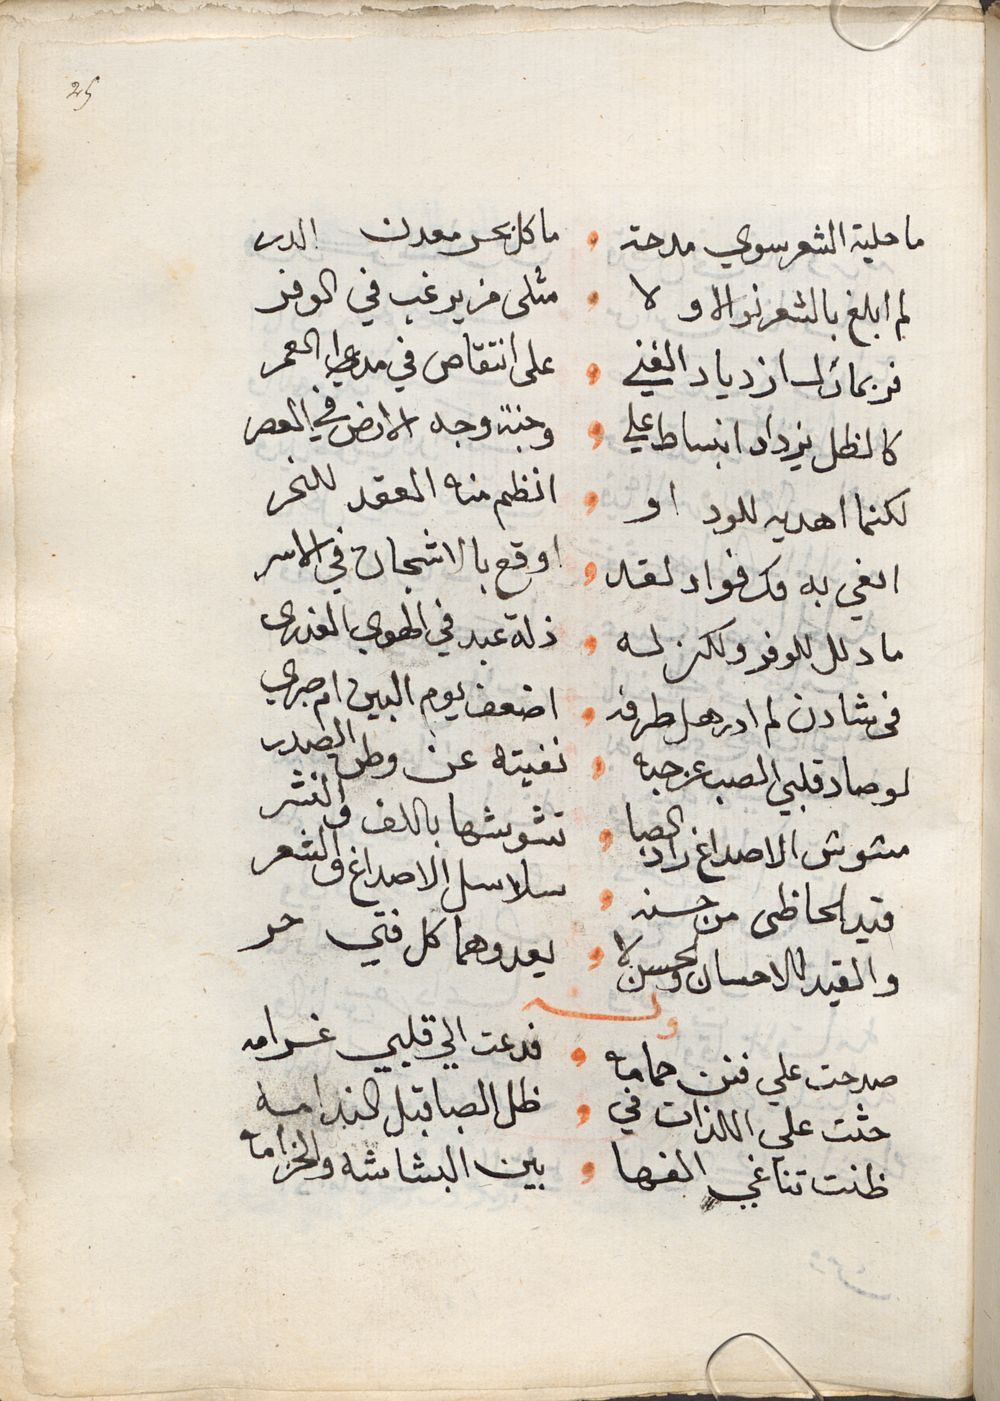 25
ما حلية الشعر سوي مدحة ما كل بحر معدن الدر
لم ابلغ بالشعر نوالا و لا مثلى من يرغب في الوفر
فربما زياد ازدياد الغني على انتقاص في مدى العمر
كالظل يزداد انبساط علي وجنة وجه الارض في العصر
لكنما اهديه للود او انظم منه العقد للنحر
الغي به فك فواد لقد اوقع بالاشجان في الاسر
ما دلل للوفر ولكن له ذلة عبد في الهوي العذرى
فى شادن لم ادر هل طرفه اضعف يوم البين ام صبري
لو صاد قلبي الصب عن حبه نفيته عن وطن الصدر
مشوش الاصداغ زاد الصبا تشويشها باللف والنشر
قيد الحاظى من حسنه سلاسل الاصداغ والشعر
والقيد بالاحسان والحسن لا يعدوهما كل فتي حر
وله
صدحت علي فنن حمامه فدعت الي قلبي غرامه
حثت علي اللذات في ظل الصبا قبل الندامه
ظنت تناغي الفها بين البشاشه والخزامه